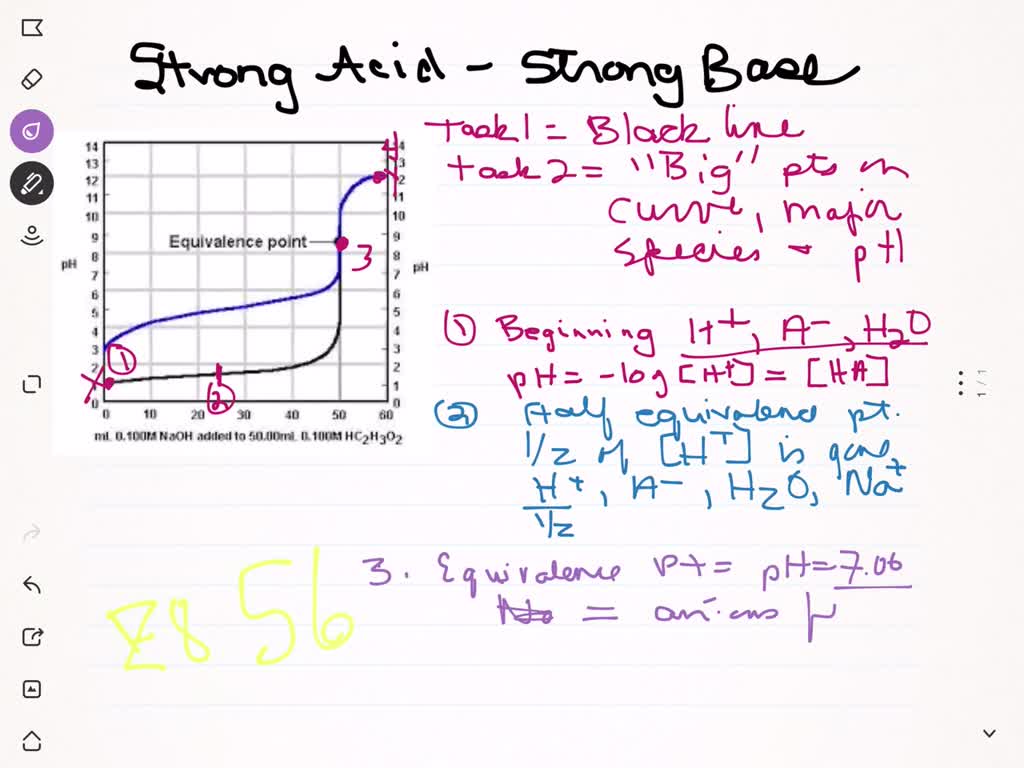 Strong Acid - Strong Base
Task 1 = Black line
Task 2 = "Big" pts on
curve, major
species pH
14 13 12 11 10 9 8 7 6 5 4 3 2 1 0
pH
Equivalence point
4
3
1
2
14 13 12 11 10 9 8 7 6 5 4 3 2 1 0
pH
0 10 20 30 40 50 60
mL 0.100M NaOH added to 50.00mL 0.100M HC₂H₃O₂
① Beginning H⁺, A⁻, H₂O
pH = -log [H⁺] = [HA]
② Half equivalence pt.
1/2 of [H⁺] is gone
H⁺, A⁻, H₂O, Na⁺
1/2
3. Equivalence pt = pH = 7.06
= anions
56